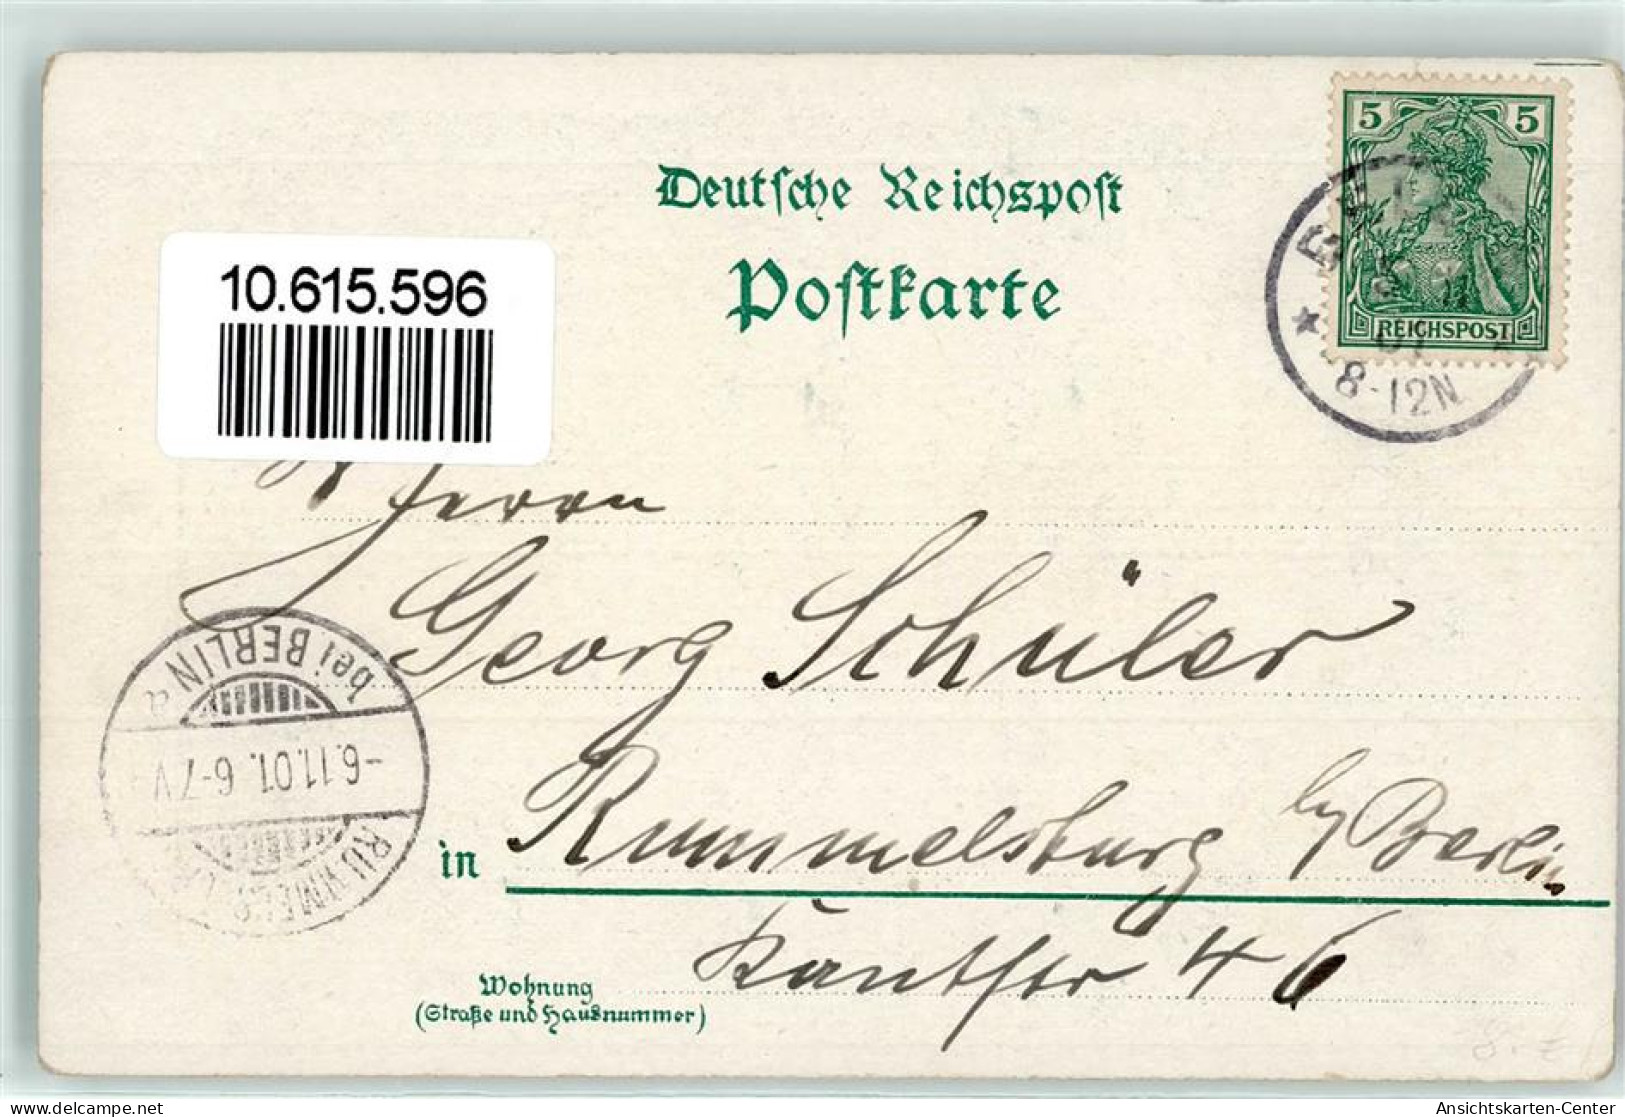 Deutsche Reichspost
Postkarte
10.615.596
5 5
REICHSPOST
01
8-12N
Herrn
Georg Schüler
bei BERLIN a
-6.11.01. 6-7V
in Rummelsburg by Berlin.
Kantstr 46
Wohnung
(Straße und Hausnummer)
Ansichtskarten-Center
delcampe.net